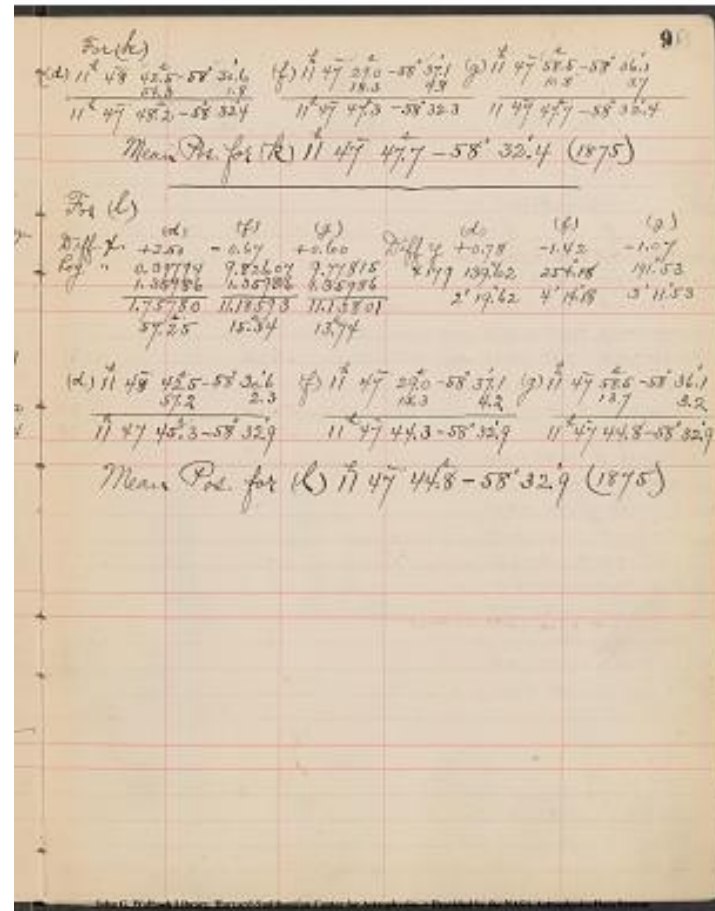 9
For (k)
(d) 11h 48m 42.5s -58° 30.6' (f) 11h 47m 29.0s -58° 37.1' (g) 11h 47m 58.5s -58° 36.1'
54.3 1.8 18.3 4.8 10.8 3.7
11h 47m 48.2s -58° 32.4' 11h 47m 47.3s -58° 32.3 11 47m 47.7s -58° 32.4'
Mean Pos. for (k) 11h 47m 47.7s -58° 32.4' (1875)
For (l)
(d) (f) (g) (d) (f) (g)
Diff x +2.50 -0.67 +0.60 Diff y +0.78 -1.42 -1.07
Log " 0.39794 9.82607 9.77815 4.179 139.62 254.18 191.53
1.35986 1.35986 1.35986 2' 19.62 4' 14.18 3' 11.53
1.75780 11.18593 11.13801
57.25 15.34 13.74
(d) 11h 48m 42.5s -58° 30.6' (f) 11h 47m 29.0s -58° 37.1' (g) 11h 47m 58.5s -58° 36.1'
57.2 2.3 15.3 4.2 13.7 3.2
11h 47m 45.3s -58° 32.9' 11h 47m 44.3s -58° 32.9' 11h 47m 44.8s -58° 32.9'
Mean Pos. for (l) 11h 47m 44.8s -58° 32.9' (1875)